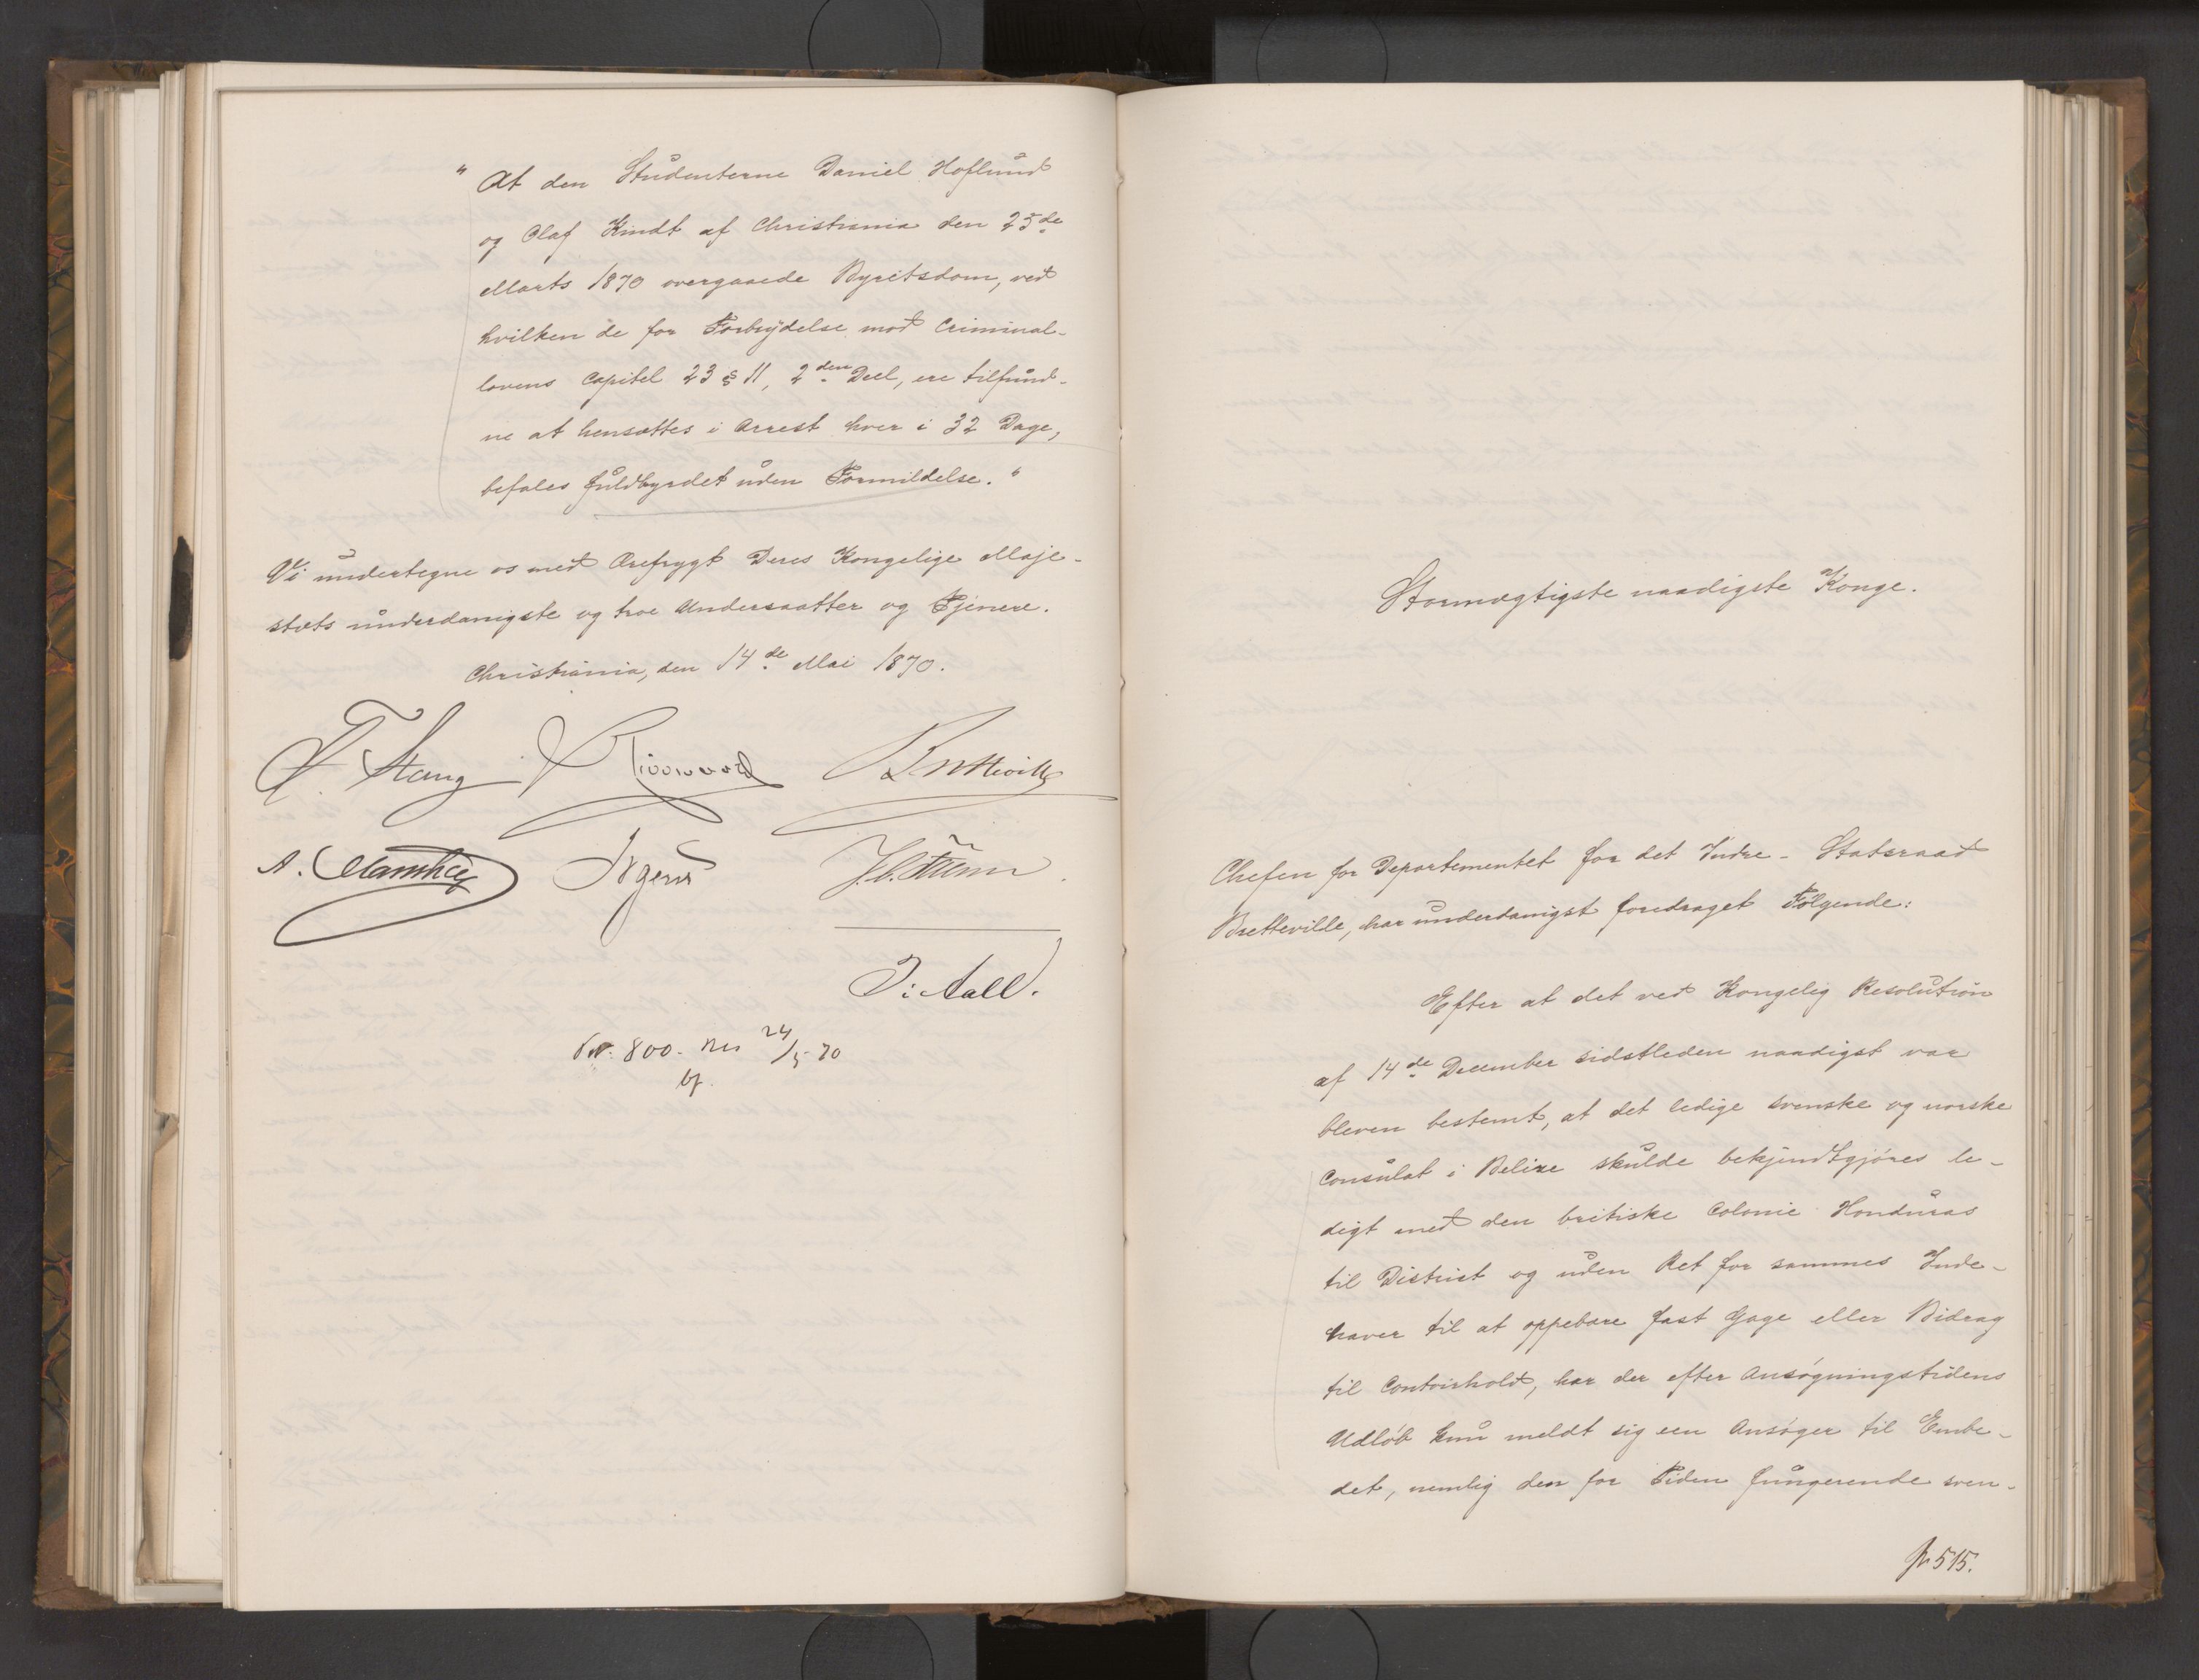 "At den Studenterne Daniel Hoflund
og Olaf Kindt af Christiania den 25de
Marts 1870 overgaaede Byretsdom, ved
hvilken de for Forbrydelse mod Criminal-
lovens Capitel 23 § 11, 2den Deel, ere tilfund-
ne at hensættes i Arrest hver i 32 Dage,
befales fuldbyrdet uden Formildelse."
Vi undertegne os med Ærefrygt Deres Kongelige Maje-
stæts underdanigste og troe Undersaatter og Tjenere.
Christiania, den 14de Mai 1870.
F. Stang
Bretteville
A. Manthey Irgens
J. Aall.
No. 800. 24/5-70
Stormægtigste naadigste Konge.
Chefen for Departementet for det Indre - Statsraad
Bretteville, har underdanigst foredraget Følgende:
Efter at det ved Kongelig Resolution
af 14de December sidstleden naadigst var
bleven bestemt, at det ledige svenske og norske
Consulat i Belize skulde bekjendtgjöres le-
digt med den britiske Colonie Honduras
til District og uden Ret for sammes Inde-
haver til at oppebære fast Gage eller Bidrag
til Contoirhold, har der efter Ansögningstidens
Udlöb kun meldt sig een Ansöger til Embe-
det, nemlig den for Tiden fungerende sven-
515.